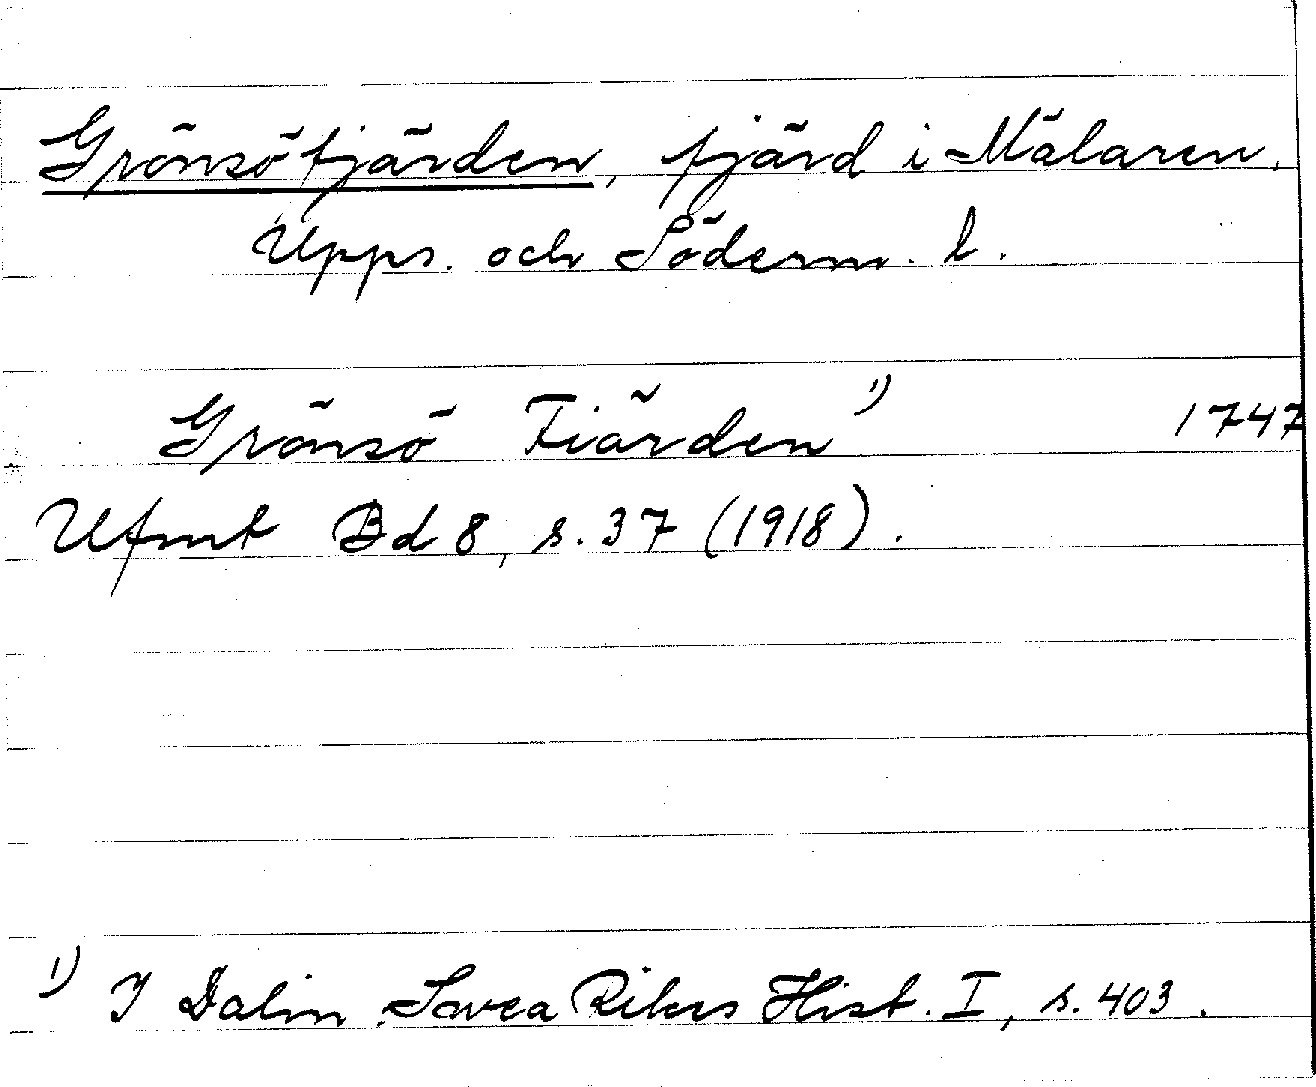 Grönsöfjärden, fjärd i Mälaren.
Upps. och Söderm. l.
Grönsö Fiärden 1) 1747
Ufmt Bd 8, s. 37 (1918).
1) I Dalin, Svea Rikes Hist. I, s. 403.